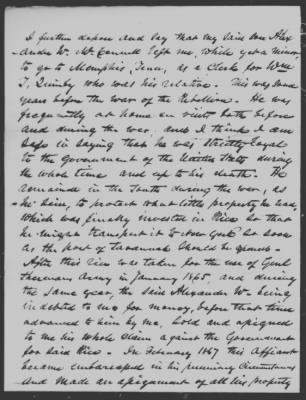 I further depose and say that my said son Alex-
ander W. McConnell left me, while yet a minor
to go to Memphis, Tenn, as a Clerk for Wm
T. Quimby who was his relative. This was some
years before the war of the Rebellion. He was
frequently at home on visits both before
and during the war, and I think I am
safe in saying that he was strictly loyal
to the Government of the United States during
the whole time and up to his death. He
remained in the South during the war, as
his heir, to protect what little property he had,
which was finally invested in Rice so that
he might transport it to New York so soon
as the port of Savannah should be opened -
After this Rice was taken for the use of Genl
Shermans Army in January 1865, and during
the same year, the said Alexander W. being
indebted to me for money, before that time
advanced to him by me, sold and assigned
to me his whole claim against the Government
for said Rice - In February 1867 this affiant
became embarrassed in his pecuniary circumstances
and made an assignment of all his property